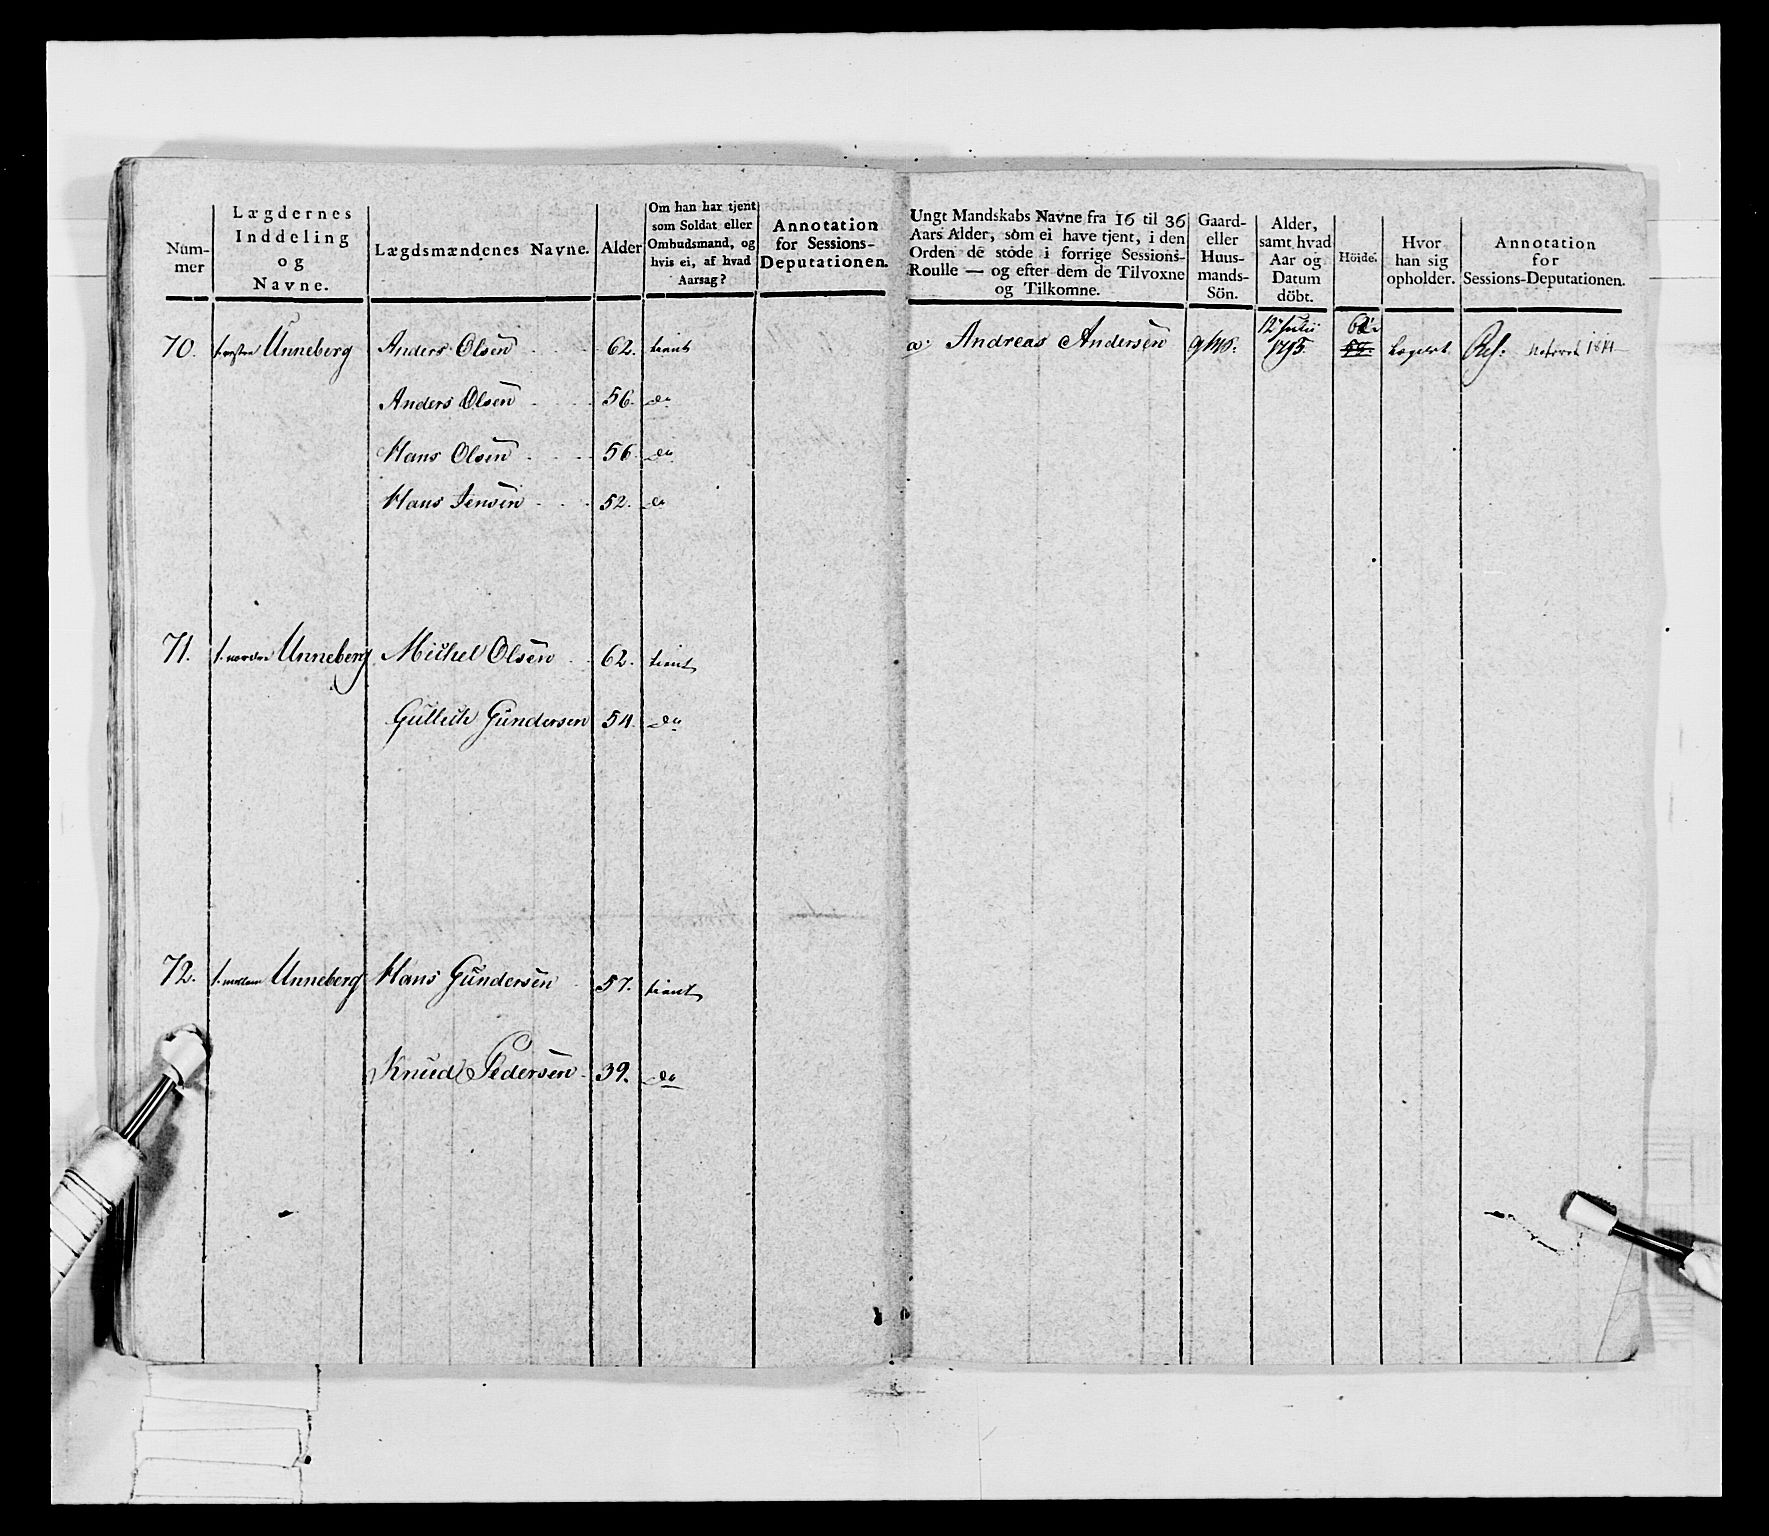 Num-
mer
Lægdernes
Inddeling
og
Navne.
Lægdsmændenes Navne.
Alder
Om han har tjent
som Soldat eller
Ombudsmand, og
hvis ei, af hvad
Aarsag?
Annotation
for Sessions-
Deputationen.
Ungt Mandskabs Navne fra 16 til 36
Aars Alder, som ei have tjent, i den
Orden de stode i forrige Sessions-
Roulle — og efter dem de Tilvoxne
og Tilkomne.
Gaard-
eller
Huus-
mands-
Sön.
Alder,
samt hvad
Aar og
Datum
döbt.
Höide.
Hvor
han sig
opholder.
Annotation
for
Sessions-Deputationen.
70. Unneberg Anders Olsen 62. tient
a. Andreas Andersen 12 Julii 1795. Lægdet. 1814
Anders Olsen 56. do
Hans Olsen 56. do
Hans Jensen 52. do
71. nordre Unneberg Michel Olsen 62. tient
Gullich Gundersen 54. do
72. mellem Unneberg Hans Gundersen 57. tient
Knud Pedersen 39. do